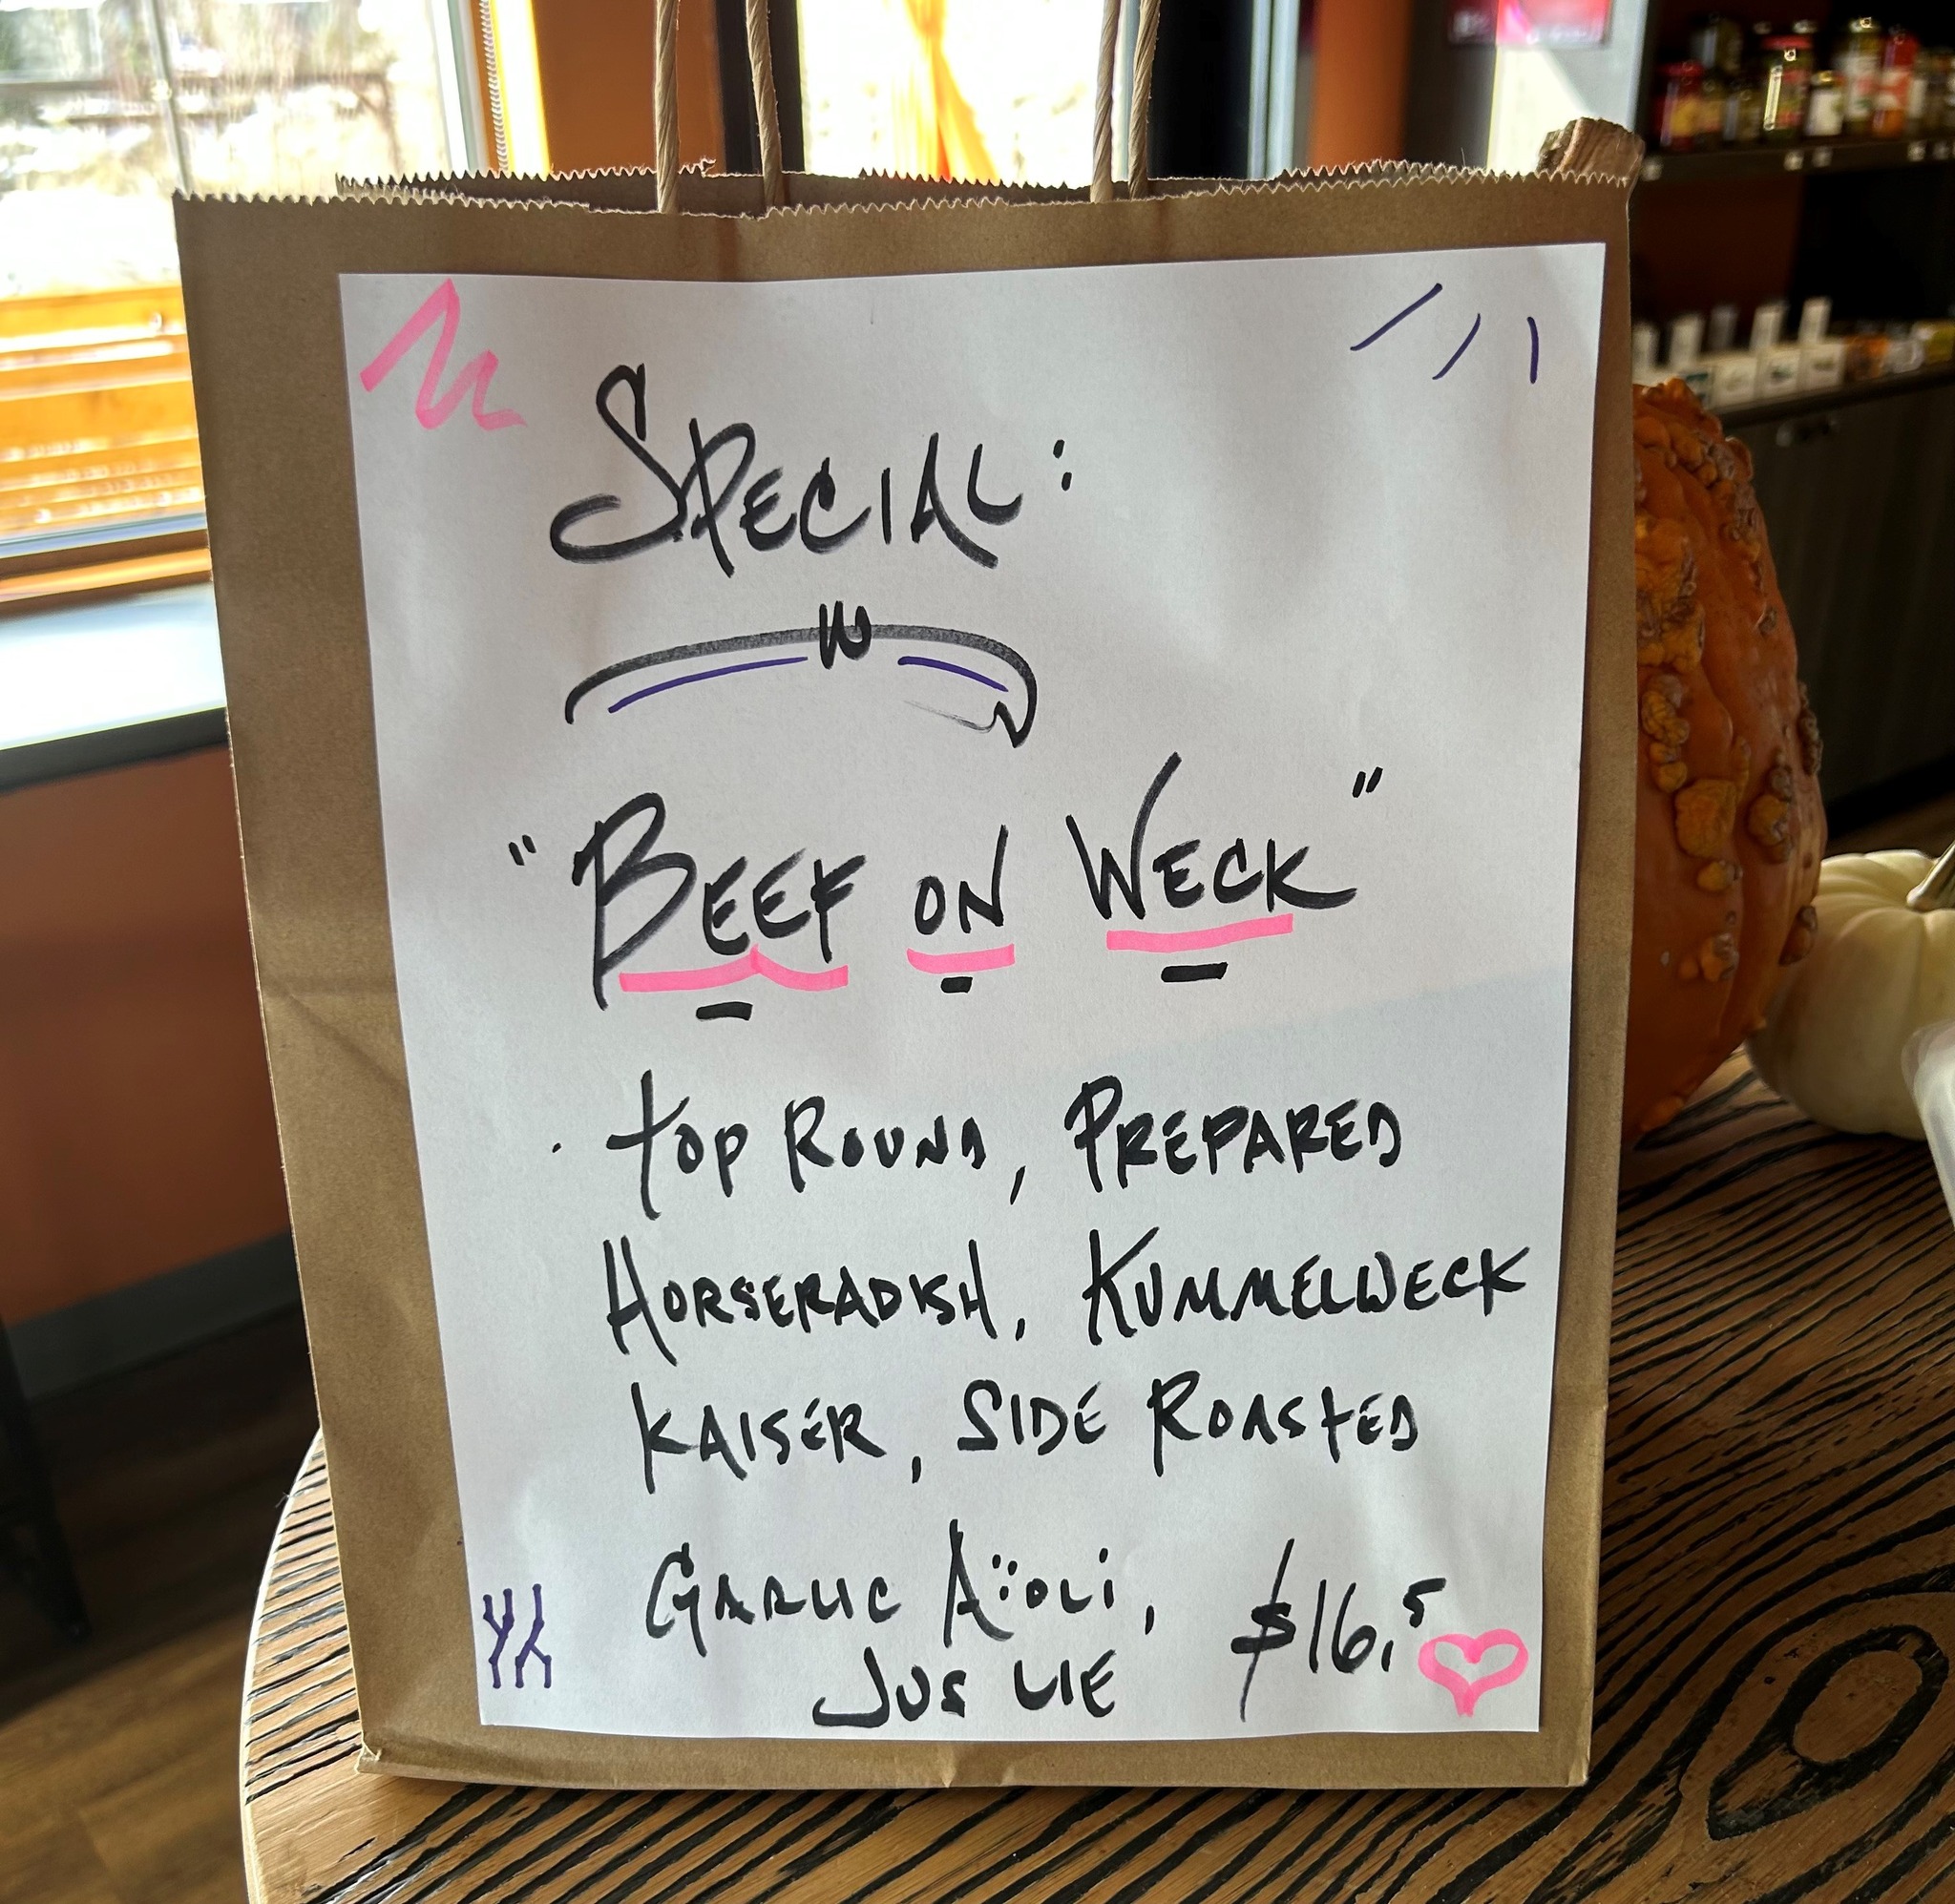 SPECIAL:
"BEEF ON WECK"
TOP ROUND, PREPARED
HORSERADISH, KUMMELWECK
KAISER, SIDE ROASTED
GARLIC AÏOLI,
JUS LIE $16.5